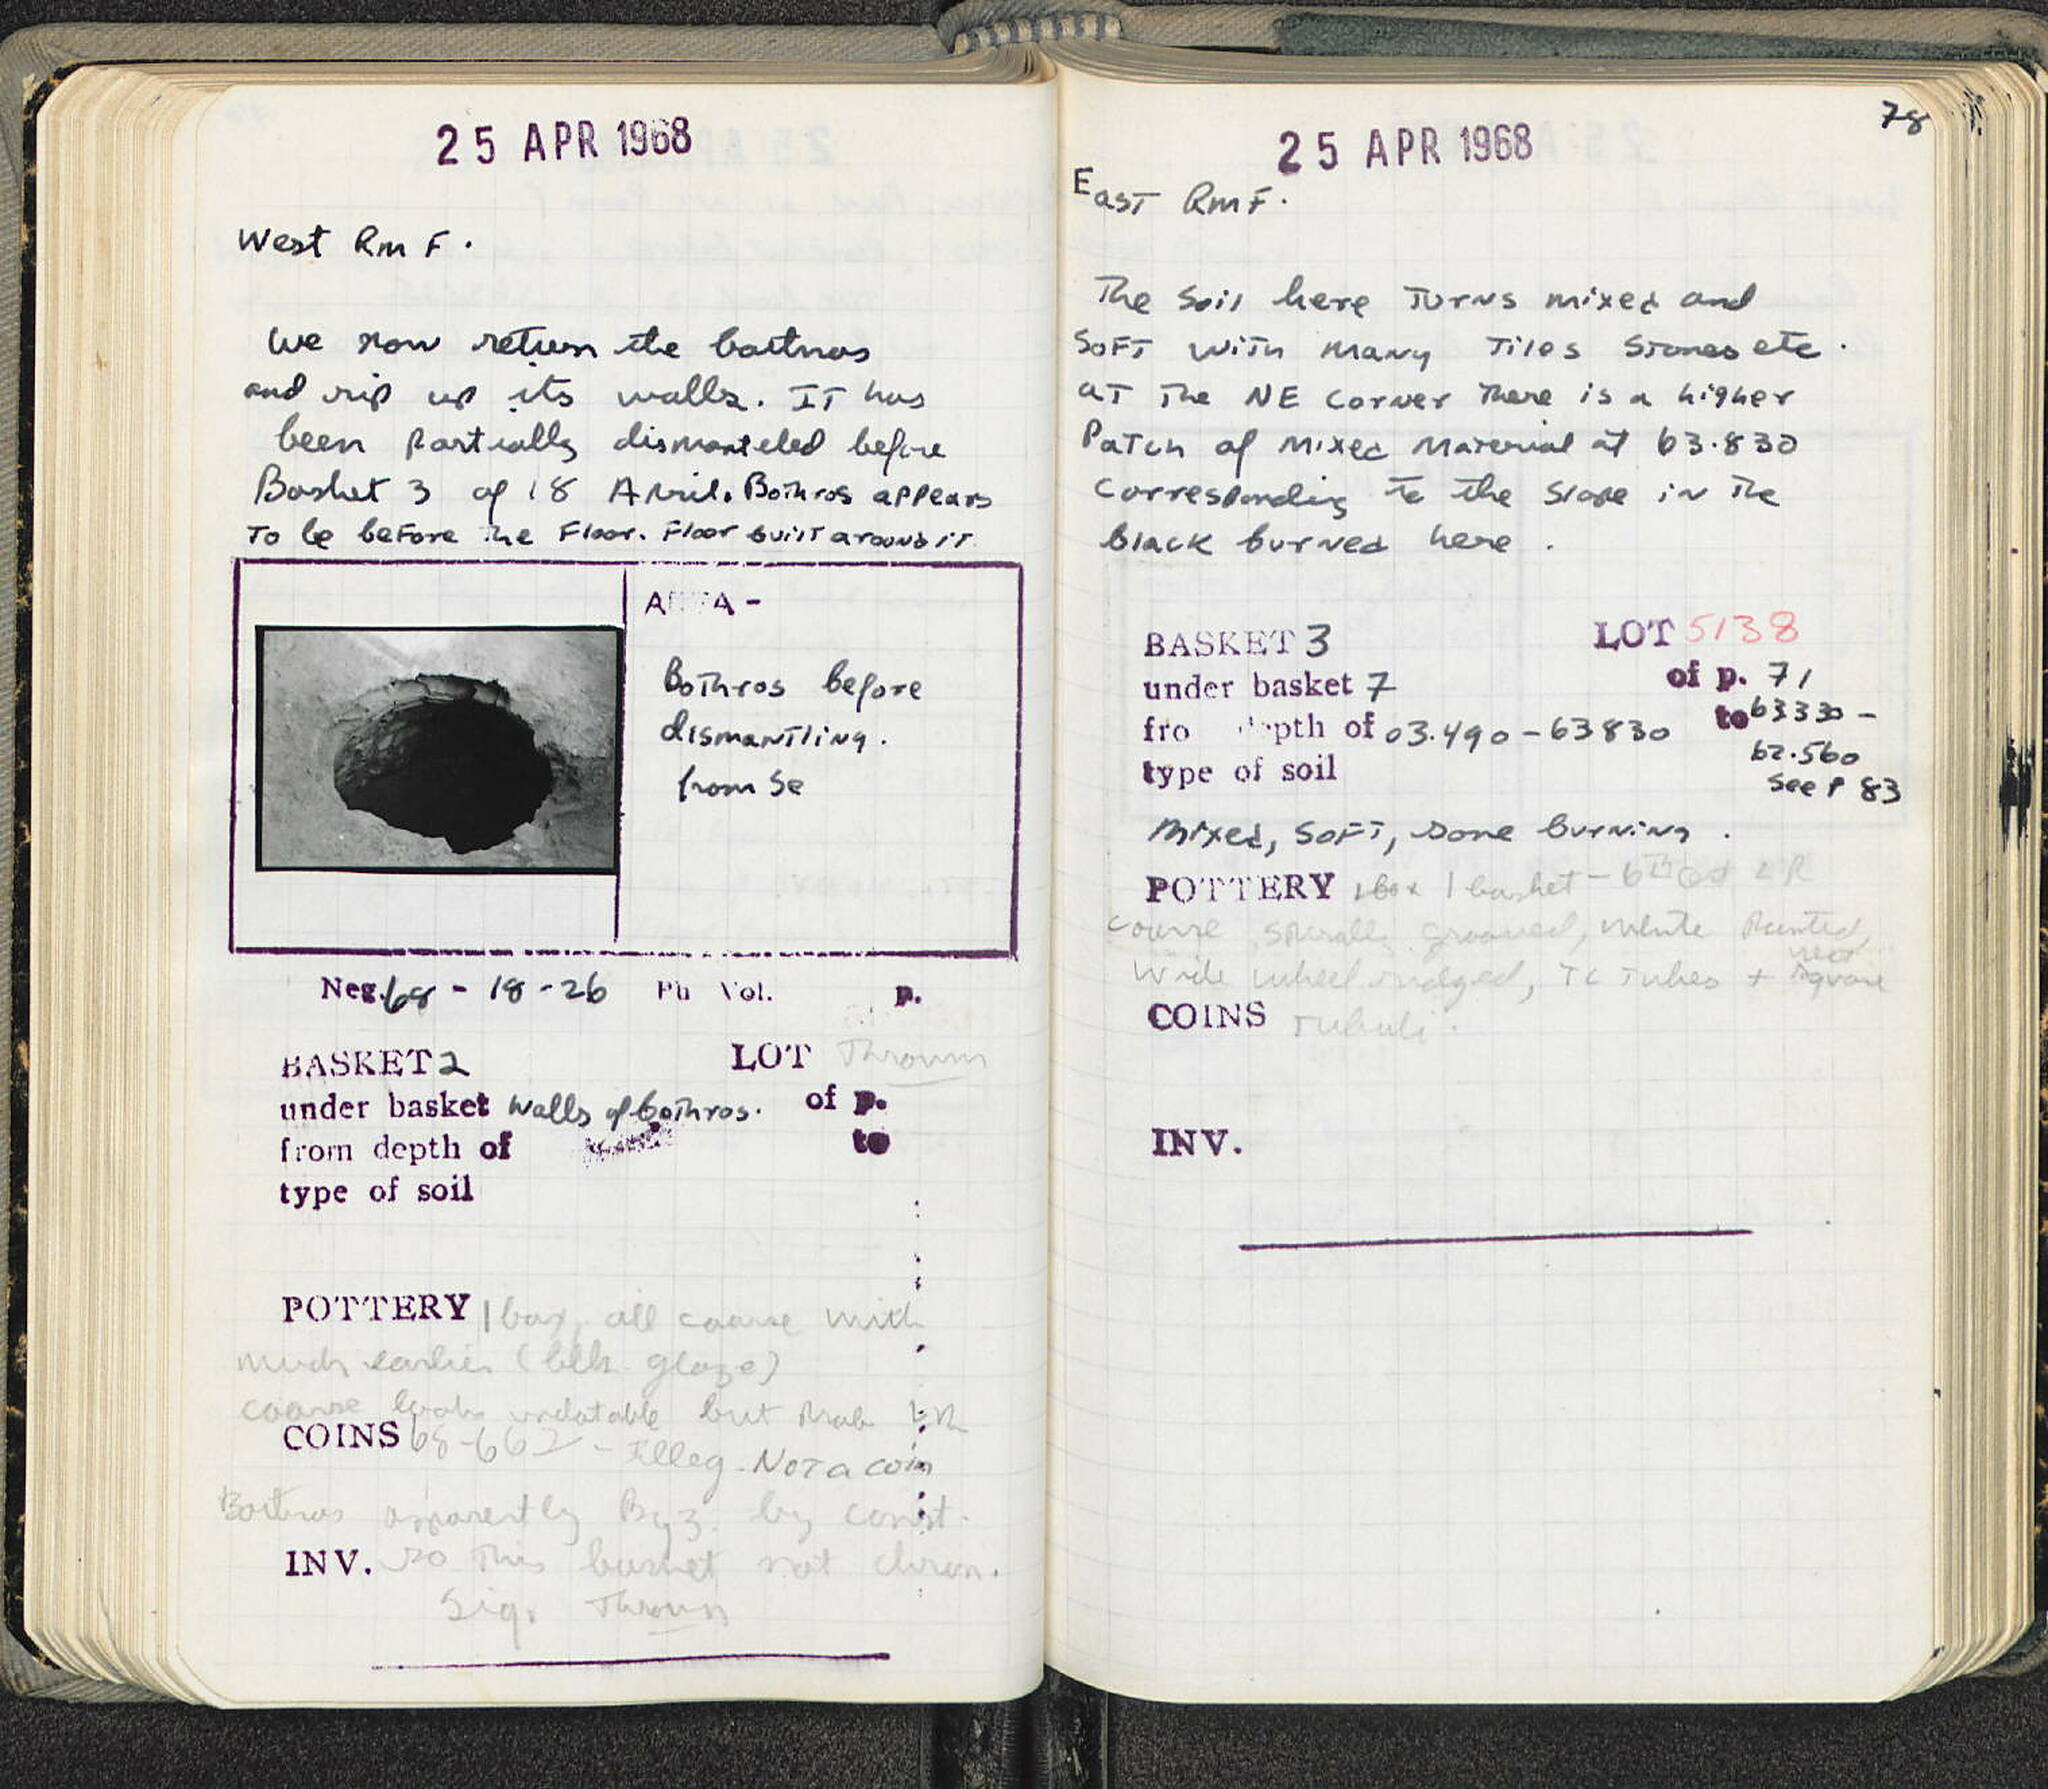 25 APR 1968
West Rm F.
We now return the bothros
and rip up its walls. IT has
been partially dismanteled before
Basket 3 of 18 April. Bothros appears
To be before the Floor. Floor built around it
AREA -
Bothros before
dismantling.
from Se
Neg. 68 - 18 - 26 Ph Vol. p.
BASKET 2 LOT Thrown
under basket Walls of bothros. of p.
from depth of to
type of soil
POTTERY 1 box, all coarse with
much earlier (blk glaze)
coarse looks undatable but Prob LR
COINS 68-662 - Illeg. NOT a coin
Bothros apparently Byz. by const.
INV. so This basket not chron.
Sig. Thrown
78
25 APR 1968
East Rm F.
The Soil here Turns mixed and
SOFT with many Tiles Stones etc.
at The NE corner There is a higher
Patch of Mixed Material at 63.830
Corresponding to the Slope in The
black burned here.
BASKET 3 LOT 5138
under basket 7 of p. 71
fro depth of 63.490 - 63830 to 63330 -
62.560
type of soil
See P 83
Mixed, SOFT, Some burning.
POTTERY 1 basket - 6th LR
coarse spirally grooved, white Painted,
Wide wheel ridged, TC Tubes + near square
COINS Tubuli.
INV.